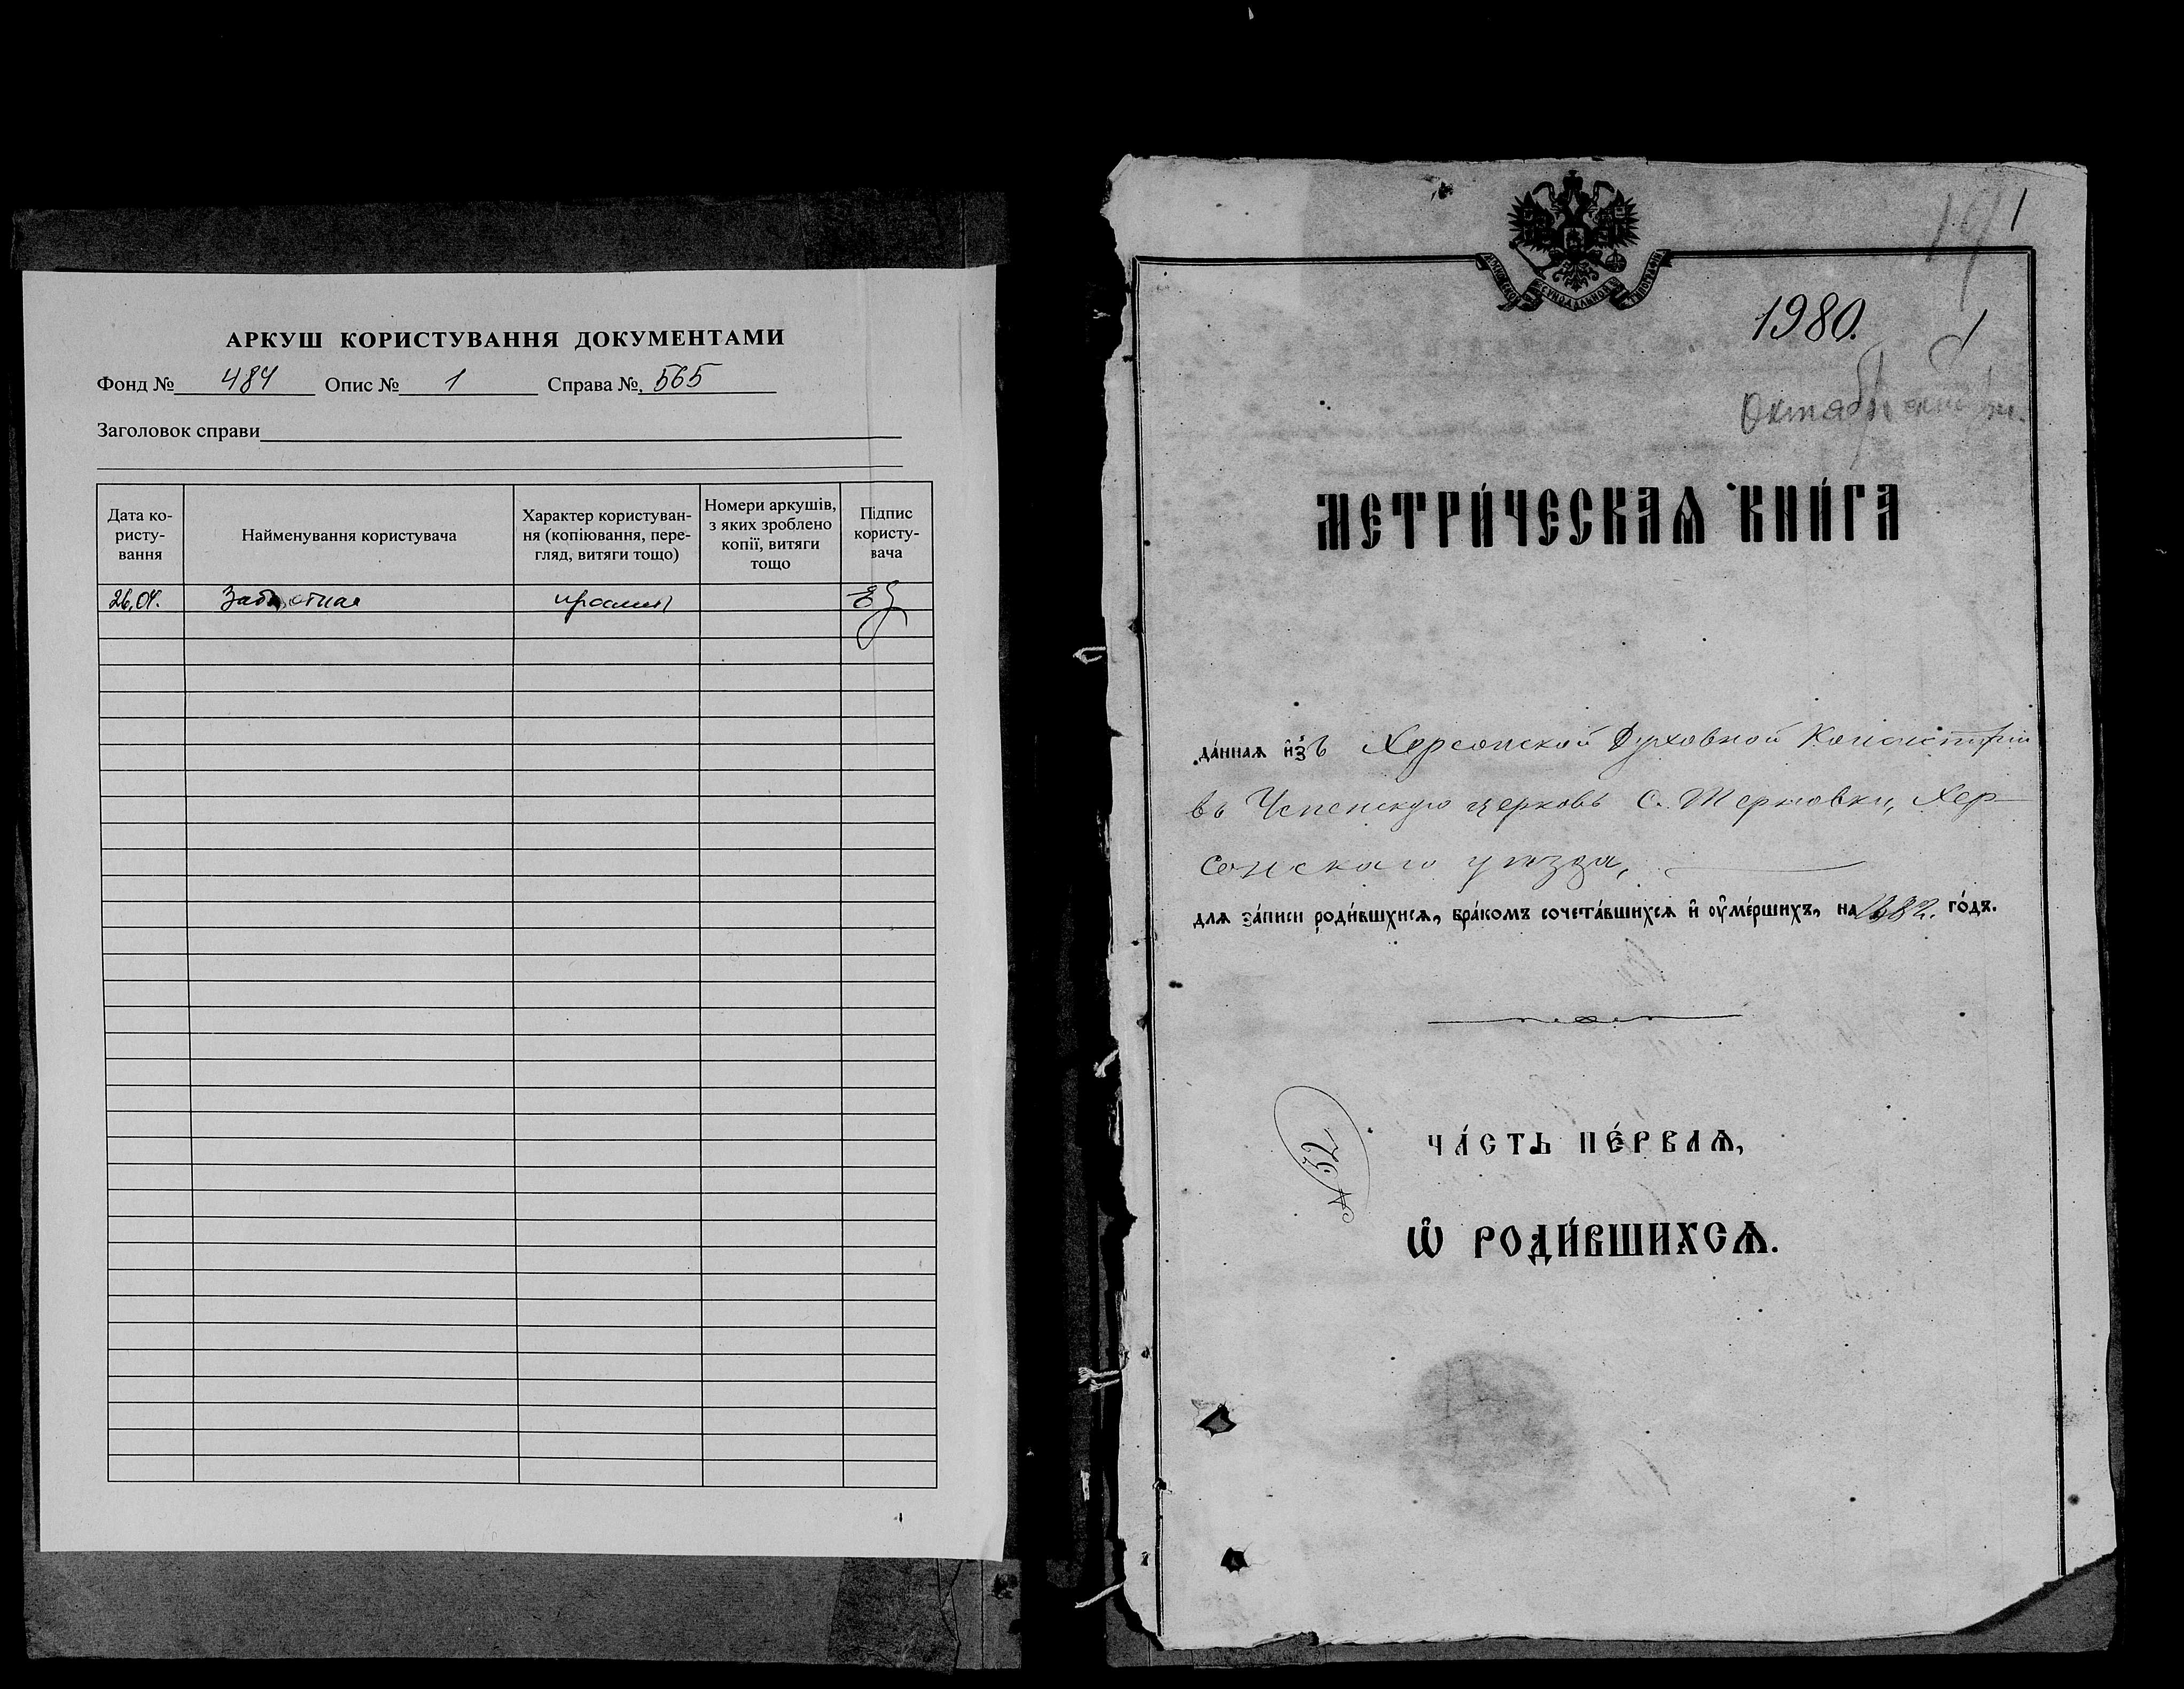 АРКУШ КОРИСТУВАННЯ ДОКУМЕНТАМИ
Фонд № 484 Опис № 1 Справа № 565
Заголовок справи
Дата ко-
ристу-
вання
Найменування користувача
Характер користуван-
ня (копіювання, пере-
гляд, витяги тощо)
Номери аркушів,
з яких зроблено
копії, витяги
тощо
Підпис
користу-
вача
26.04. Заболотная
1
1980.
МЕТРИ́ЧЕСКАѦ КНИ́ГА
да́нная и҆зъ Херсонской Духовной Консисторіи
въ Успенскую церковь с. Терновки, Хер-
сонскаго уѣзда,
для за́писи роди́вшихсѧ, бра́комъ сочета́вшихсѧ и҆ ѹ҆ме́ршихъ, на 1882. го́дъ.
ЧА́СТЬ ПЕ́РВАѦ,
Ѡ҆ РОДИ́ВШИХСѦ.